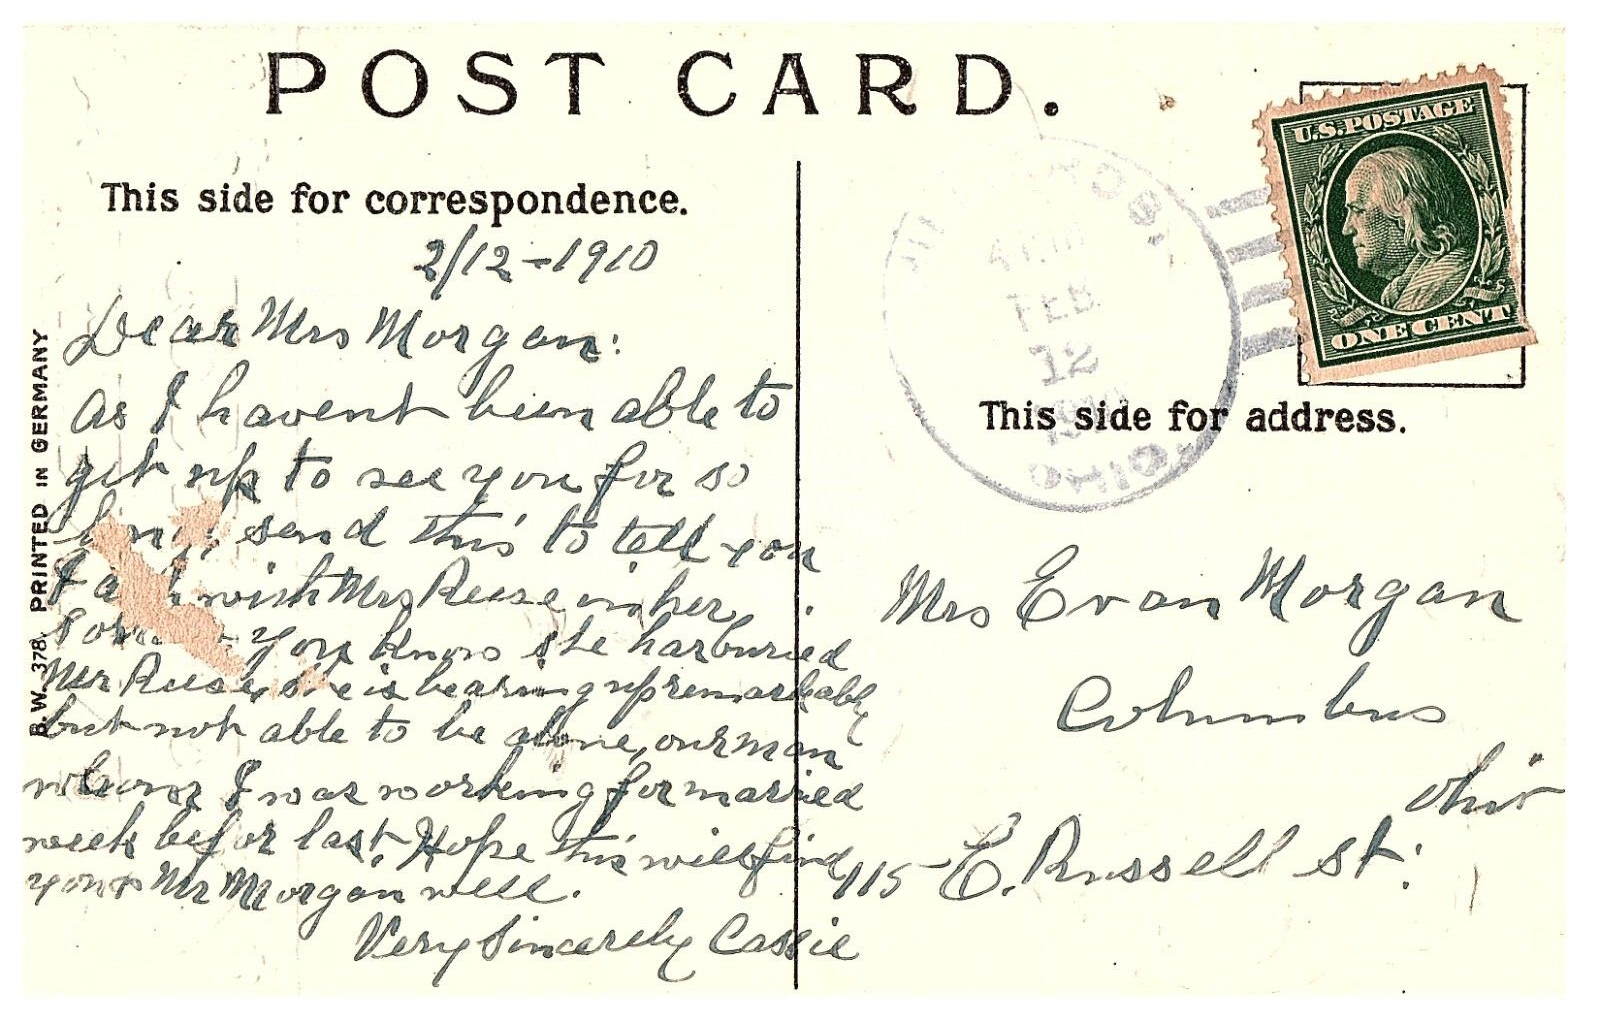 POST CARD.
This side for correspondence.
2/12-1910
Dear Mrs Morgan:
As I havent been able to
get up to see you for so
send this to tell you
I a wish Mrs Reese in her
You know she has buried
Mr Reese, she is bearing up remarkably
but not able to be alone, our man
whom I was working for married
week befor last. Hope this will find
you & Mr Morgan well.
Very Sincerely Cassie
B.W. 378. PRINTED IN GERMANY
U.S. POSTAGE
ONE CENT
FEB
12
1910
OHIO
This side for address.
Mrs Evan Morgan
Columbus
Ohio
115 E. Russell St.